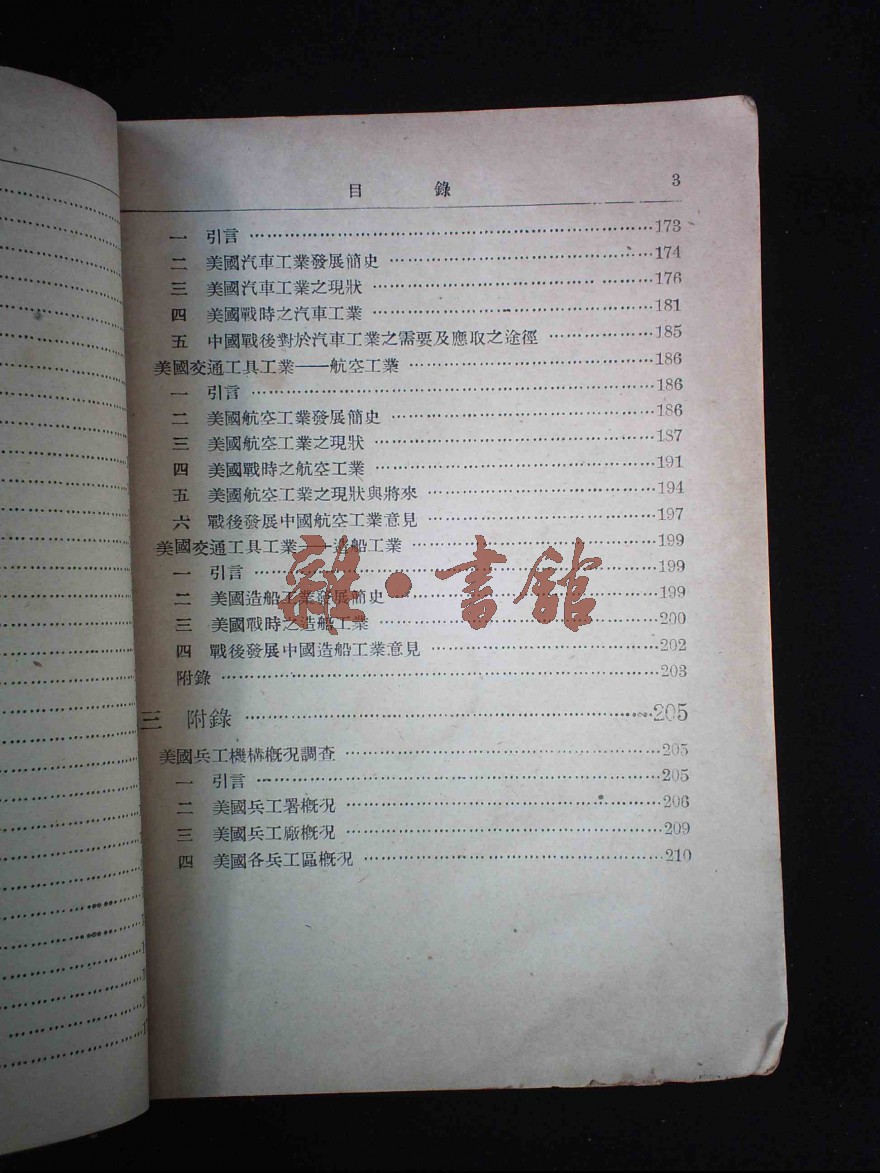 目　錄　3
一　引言 ……173
二　美國汽車工業發展簡史 ……174
三　美國汽車工業之現狀 ……176
四　美國戰時之汽車工業 ……181
五　中國戰後對於汽車工業之需要及應取之途徑 ……185
美國交通工具工業——航空工業 ……186
一　引言 ……186
二　美國航空工業發展簡史 ……186
三　美國航空工業之現狀 ……187
四　美國戰時之航空工業 ……191
五　美國航空工業之現狀與將來 ……194
六　戰後發展中國航空工業意見 ……197
美國交通工具工業——造船工業 ……199
一　引言 ……199
二　美國造船工業發展簡史 ……199
三　美國戰時之造船工業 ……200
四　戰後發展中國造船工業意見 ……202
附錄 ……203
雜·書館
三　附錄 ……205
美國兵工機構概況調查 ……205
一　引言 ……205
二　美國兵工署概況 ……206
三　美國兵工廠概況 ……209
四　美國各兵工區概況 ……210